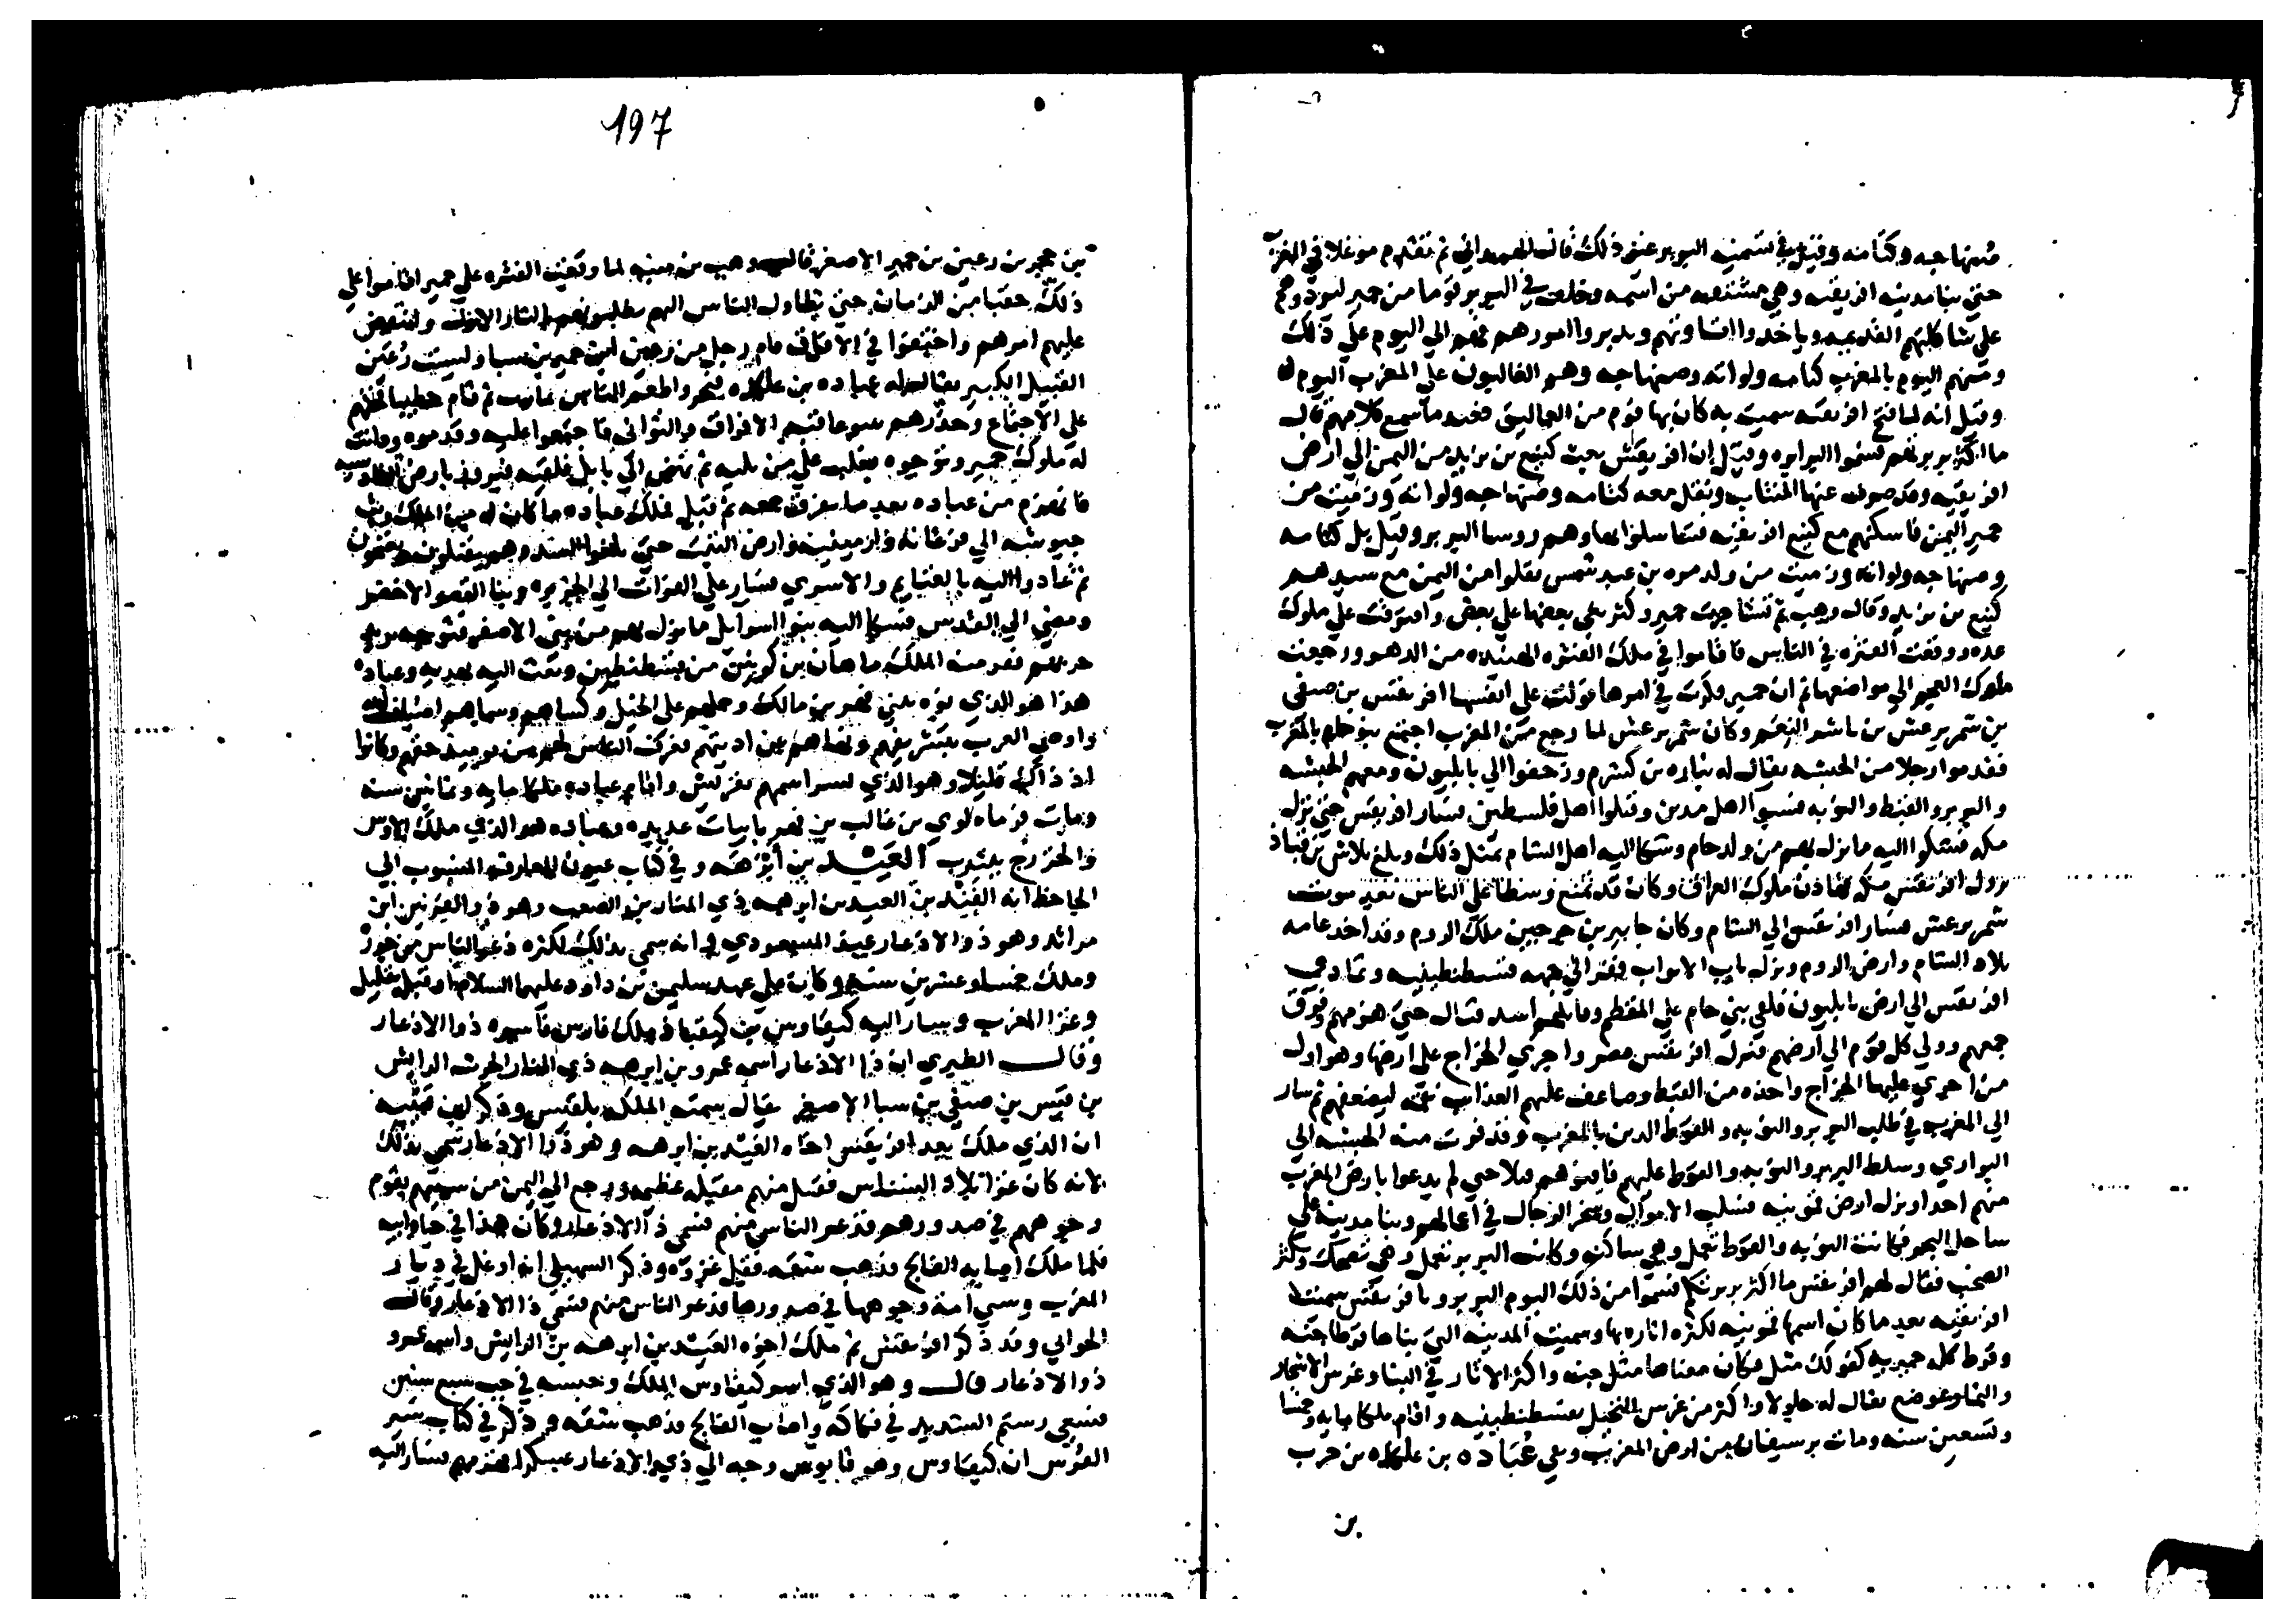 صنهاجه وكتامه وقيل في تسميه البربر غير ذلك قال الهمداني ثم تقدم موغلا في المغرب
حتى بنا مدينه افريقيه وهي مشتقه من اسمه وخلف في البربر قوما من حمير ليردوهم
على شاكلتهم القديمه وياخذوا اتاوتهم ويدبروا امورهم فهم الي اليوم علي ذلك
ومنهم اليوم بالمغرب كتامه ولواته وصنهاجه وهم الغالبون على المغرب اليوم
وقيل انه لما فتح افريقيه سميت به كان بها قوم من العماليق فعند ما سمع كلامهم قال
ما اكثر بربرتهم فسموا البرابره وقيل ان افريقش بعث كنيع بن يزيد من اليمن الي ارض
افريقيه ونقل معه كتامه وصنهاجه ولواته وزميت من
حمير اليمن فاسكنهم مع كنيع افريقيه فتناسلوا بها وهم روسا البربر وقيل بل كتامه
وصنهاجه ولواته وزميت من ولد مره بن عبد شمس نقلوا من اليمن مع سيدهم
كنيع بن يزيد وقال وهب ثم تشاجرت حمير وكثر بغي بعضها على بعض وافترقت علي ملوك
عده ووقعت الفتره في الناس فاقاموا في ملك الفتره المده من الدهر ورجعت
ملوك العجم الي مواضعها ثم ان حمير فكرت في امرها فولت على انفسها افريقس بن صيفي
بن شمر يرعش بن ناشر النعم وكان شمر يرعش لما رجع من المغرب اجتمع بنو حام بالمغرب
فقدموا رجلا من الحبشه يقال له بن كثرم وزحفوا الي بابليون ومعهم الحبشه
والبربر والقبط والنوبه فسبوا اهل مدين وقتلوا اهل فلسطين فسار افريقس حتى نزل
مكه فشكوا اليه ما نزل بهم من ولد حام وشكا اليه اهل الشام بمثل ذلك وبلغ بلاش بن قباذ
نزول افريقس مكه ملوك العراق وكان قد تمنع وسطا على الناس بعد موت
شمر يرعش فسار افريقس الي الشام وكان بن ملك الروم وقد اخذ عامه
بلاد الشام وارض الروم ونزل باب الابواب ففر الي قسطنطينيه وتمادي
افريقس الي ارض بابليون فلقي بني حام علي المقطم وقاتلهم اشد قتال حتى هزمهم وفرق
جمعهم وولي كل قوم الي ارضهم فنزل افريقس مصر واجري الخراج على ارضها وهو اول
من اجري عليها الخراج واخذه من القبط وضاعف عليهم العذاب ليضعفهم ثم سار
الي المغرب في طلب البربر والنوبه والقوط الذين بالمغرب وقد فرت منه الحبشه الي
البواري وسلط البربر والنوبه والقوط عليهم قتلا حتى لم يدعوا بارض المغرب
منهم احدا ونزل ارض قمونيه فسلب الاموال وسخر الرجال في اعمالهم وبنا مدينه على
ساحل البحر فكانت النوبه والقوط تعمل وهي ساكنه وكانت البربر تعمل وهي تضحك وتكثر
الصخب فقال لهم افريقس ما اكثر بربرتكم فسموا من ذلك اليوم البربر وبافريقس سميت
افريقيه بعد ما كان اسمها قمونيه لكثره اثاره بها وسميت المدينه التي بناها قرطاجنه
وقرط كله حميريه كقولك مثل فكان معناها مثل جنه واكثر الاثار في البنا وغرس الاشجار
والبنا وموضع يقال له جلولا واكثر من غرس النخيل بقسطنطينيه واقام ملكا مايه وخمسا
وتسعين سنه ومات من ارض المغرب وبقي عباده بن بن حرب
بن
197
بن حجر بن رعين بن حمير الاصغر قال وهب بن منبه لما وقعت الفتره علي حمير اقاموا علي
ذلك حقبا من الزمان حتى تطاول الناس اليهم يطلبونهم بالثار الاول وانتقض
عليهم امرهم واختلفوا في الافاق قام رجل من رعين ابن حمير بن سبا وليست رعين
القبيل الكبير يقال له عباده بن فنحر واطعم الناس ثم قام خطيبا
على الاجتماع وحذرهم سو عاقبه الافتراق والتواني فاجتمعوا عليه وقدموه ودانت
له ملوك حمير وتوجوه فغلب علي من يليه ثم نهض الي بابل فلقيه فيروز بارض
فانهزم من عباده بعد ما تفرق جمعه ثم قتل فملك عباده ما كان له من الملك وبث
جيوشه الي فرغانه وارمينيه وارض التبت حتى بلغوا السند وهم يقتلون
ثم عادوا اليه بالغنايم والاسري فسار علي الفرات الي الجزيره وبنا القصر الاخضر
ومضى الي القدس فشكا اليه بنو اسرايل ما نزل بهم من بني الاصفر فتوجه يريد
حربهم ففر منه الملك ماهان بن من قسطنطين وبعث اليه بهديه وعباده
هذا هو الذي نوه ببني فهر بن مالك وحملهم على الخيل وكساهم وسماهم اضياف الله
واوصى العرب بتشريفهم ونهاهم عن اذيتهم فعرف الناس لهم من يوميذ حقهم وكانوا
اذ ذاك قليلا وهو الذي اسمهم بقريش واقام عباده ملكا مايه وثمانين سنه
ومات فرثاه لوي بن غالب بن فهر بابيات عديده وعباده هو الذي ملك الاوس
والخزرج بيثرب العبد بن ابرهه وفي كتاب عيون المعارف المنسوب الي
الجاحظ انه العبد بن ابرهه ذي المنار بن الصعب وهو ذو القرنين ابن
مراثد وهو ذو الاذعار عند المسعودي وانه سمي بذلك لكثره ذعر الناس من جوره
وملك خمسا وعشرين سنه وكان علي عهد سليمن بن داود عليهما السلام او قبله بقليل
وغزا المغرب وسار اليه كيقاوس بن كيقباذ ملك فارس فاسره ذوا الاذعار
وقال الطبري ان ذا الاذعار اسمه عمرو بن ابرهه ذي المنار الحرث الرايش
بن قيس بن صيفي بن سبا الاصغر يقال بنت الملك بلقيس وذكر ابن قتيبه
ان الذي ملك بعد افريقس اخاه العبد بن ابرهه وهو ذو الاذعار سمي بذلك
لانه كان غزا بلاد النسناس فقتل منهم مقتله عظيمه ورجع الي اليمن من سبيهم بقوم
وجوههم في صدورهم فذعر الناس منهم فسمي ذا الاذعار وكان هذا في حياه ابيه
فلما ملك اصابه الفالج فذهب شقه فقل غزوه وذكر السهيلي انه اوغل في ديار
المغرب وسبي امه وجوهها في صدورها فذعر الناس منهم فسمي ذا الاذعار وقال
الحوالي وقد ذكر افريقس ثم ملك اخوه العبد بن ابرهه بن الرايش واسمه عمرو
ذو الاذعار قال وهو الذي اسر كيقاوس الملك وحبسه في جب سبع سنين
فسعي رستم الشديد في فكاكه واصاب الفالج فذهب شقه وذكر في كتاب سير
الفرس ان كيقاوس وهو قابوس وجه الي ذي الاذعار عسكرا فهزمهم فسار اليه